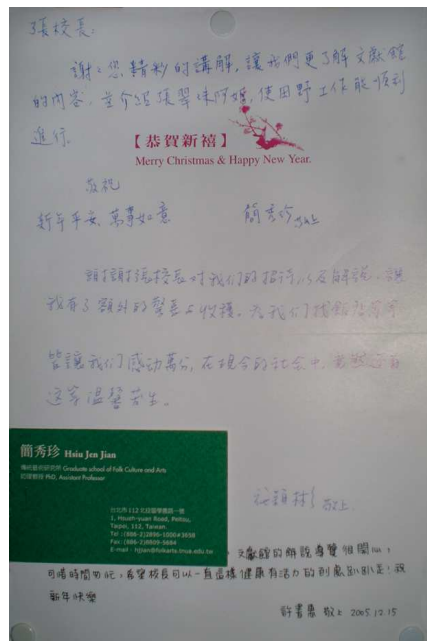 張校長:
謝謝您精彩的講解,讓我們更了解文獻館
的內容,並介紹張翠味阿媽,使田野工作能順利
進行。
【恭賀新禧】
Merry Christmas & Happy New Year.
敬祝
新年平安、萬事如意
簡秀珍 敬上
謝謝張校長對我們的招待以及解說,讓
我有了額外的驚喜與收穫。
皆讓我们感动萬分,在現今的社会中,
這等溫馨
簡秀珍 Hsiu Jen Jian
傳統藝術研究所 Graduate school of Folk Culture and Arts
助理教授 PhD, Assistant Professor
台北市112北投區學園路一號
1, Hsueh-yuan Road, Peitou,
Taipei, 112, Taiwan
Tel :(886-2)2896-1000#3658
Fax :(886-2)8809-5684
E-mail : hjjian@folkarts.tnua.edu.tw
敬上
文獻館的解說導覽
可惜時間匆忙,希望校長可以一直這樣健康有活力
新年快樂
許書惠 敬上 2005.12.15